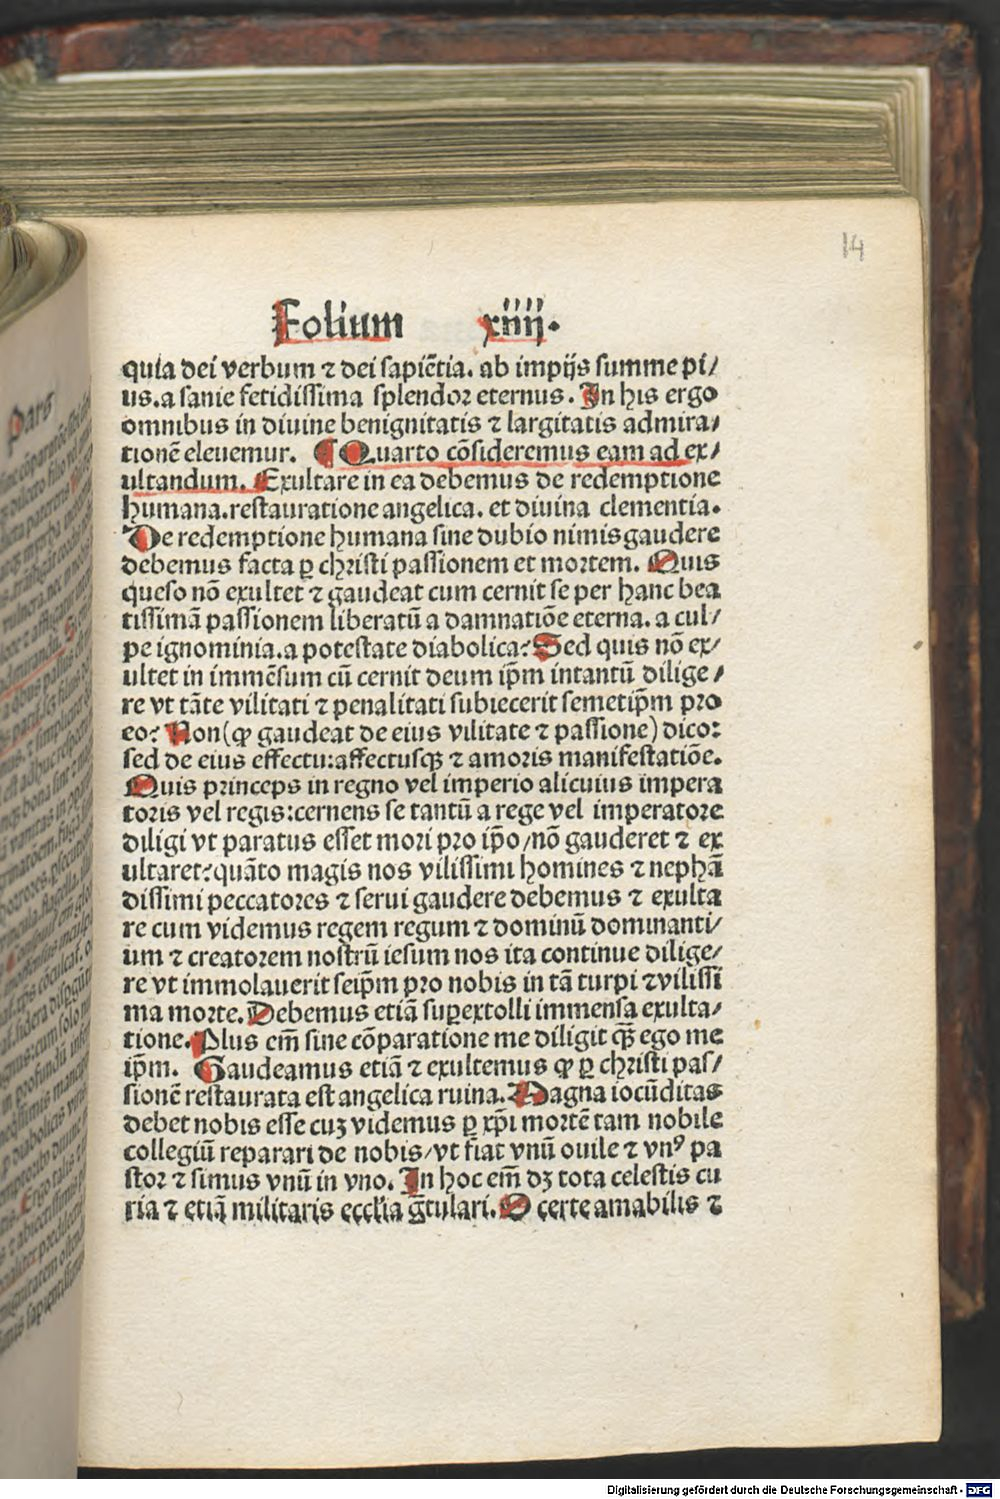 14
Folium xiiij.
quia dei verbum ⁊ dei sapiẽtia. ab impijs summe pi/
us. a sanie fetidissima splendor eternus. In his ergo
omnibus in diuine benignitatis ⁊ largitatis admira/
tionẽ eleuemur. ¶ Quarto cõsideremus eam ad ex/
ultandum. Exultare in ea debemus de redemptione
humana. restauratione angelica. et diuina clementia.
De redemptione humana sine dubio nimis gaudere
debemus facta ꝑ christi passionem et mortem. Quis
queso nõ exultet ⁊ gaudeat cum cernit se per hanc bea
tissimã passionem liberatũ a damnatiõe eterna. a cul/
pe ignominia. a potestate diabolica? Sed quis nõ ex/
ultet in immẽsum cũ cernit deum ip̃m intantũ dilige/
re vt tãte vilitati ⁊ penalitati subiecerit semetip̃m pro
eo? Non (ꝙ gaudeat de eius vilitate ⁊ passione) dico:
sed de eius effectu: affectusqꝫ ⁊ amoris manifestatiõe.
Quis princeps in regno vel imperio alicuius impera
toris vel regis: cernens se tantũ a rege vel imperatore
diligi vt paratus esset mori pro ip̃o/ nõ gauderet ⁊ ex
ultaret? quãto magis nos vilissimi homines ⁊ nephã
dissimi peccatores ⁊ serui gaudere debemus ⁊ exulta
re cum videmus regem regum ⁊ dominũ dominanti/
um ⁊ creatorem nostrũ iesum nos ita continue dilige/
re vt immolauerit seip̃m pro nobis in tã turpi ⁊ vilissi
ma morte. Debemus etiã suꝑextolli immensa exulta/
tione. Plus em̃ sine cõparatione me diligit qꝫ̃ ego me
ip̃m. Gaudeamus etiã ⁊ exultemus ꝙ ꝑ christi pas/
sionẽ restaurata est angelica ruina. Magna iocũditas
debet nobis esse cuꝫ videmus ꝑ xp̃i mortẽ tam nobile
collegiũ reparari de nobis/ vt fiat vnũ ouile ⁊ vnꝰ pa
stor ⁊ simus vnũ in vno. In hoc em̃ dꝫ tota celestis cu
ria ⁊ etiã militaris eccl̃ia g̃tulari. O certe amabilis ⁊
Digitalisierung gefördert durch die Deutsche Forschungsgemeinschaft - DFG